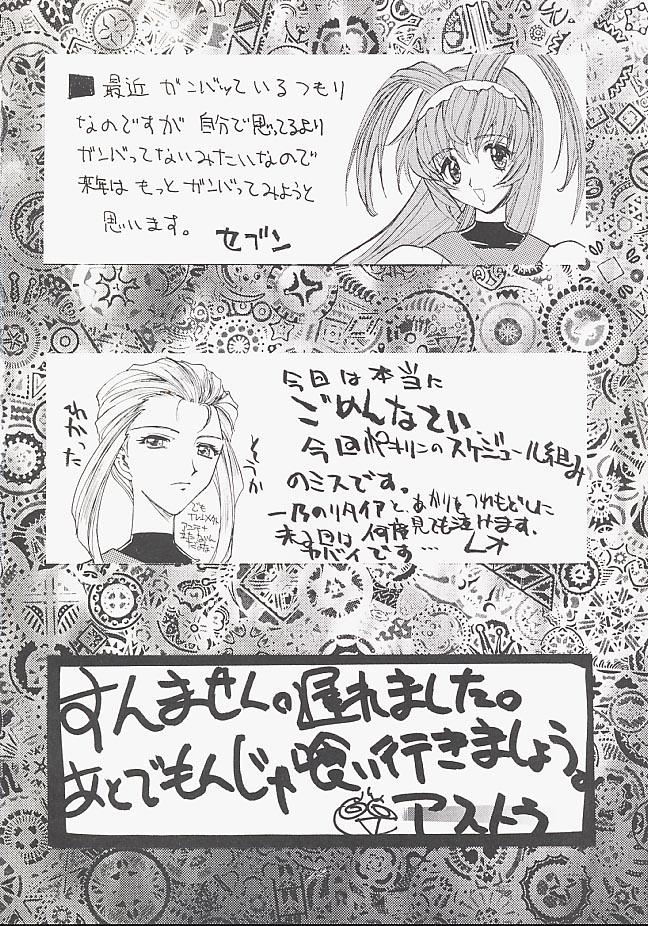 ■最近 ガンバッているつもり
なのですが 自分で思ってるより
ガンバってないみたいなので
来年は もっと ガンバってみようと
思います。 セブン
今回は本当に
ごめんなさい。
今回のスケジュール組み
のミスです。
一乃のリタイアと、あかりをつれもどしに
来る回は何度見ても泣けます。
ヤバイです…
でも
すんません。遅れました。
あとでもんじゃ喰い行きましょう。
アストラ